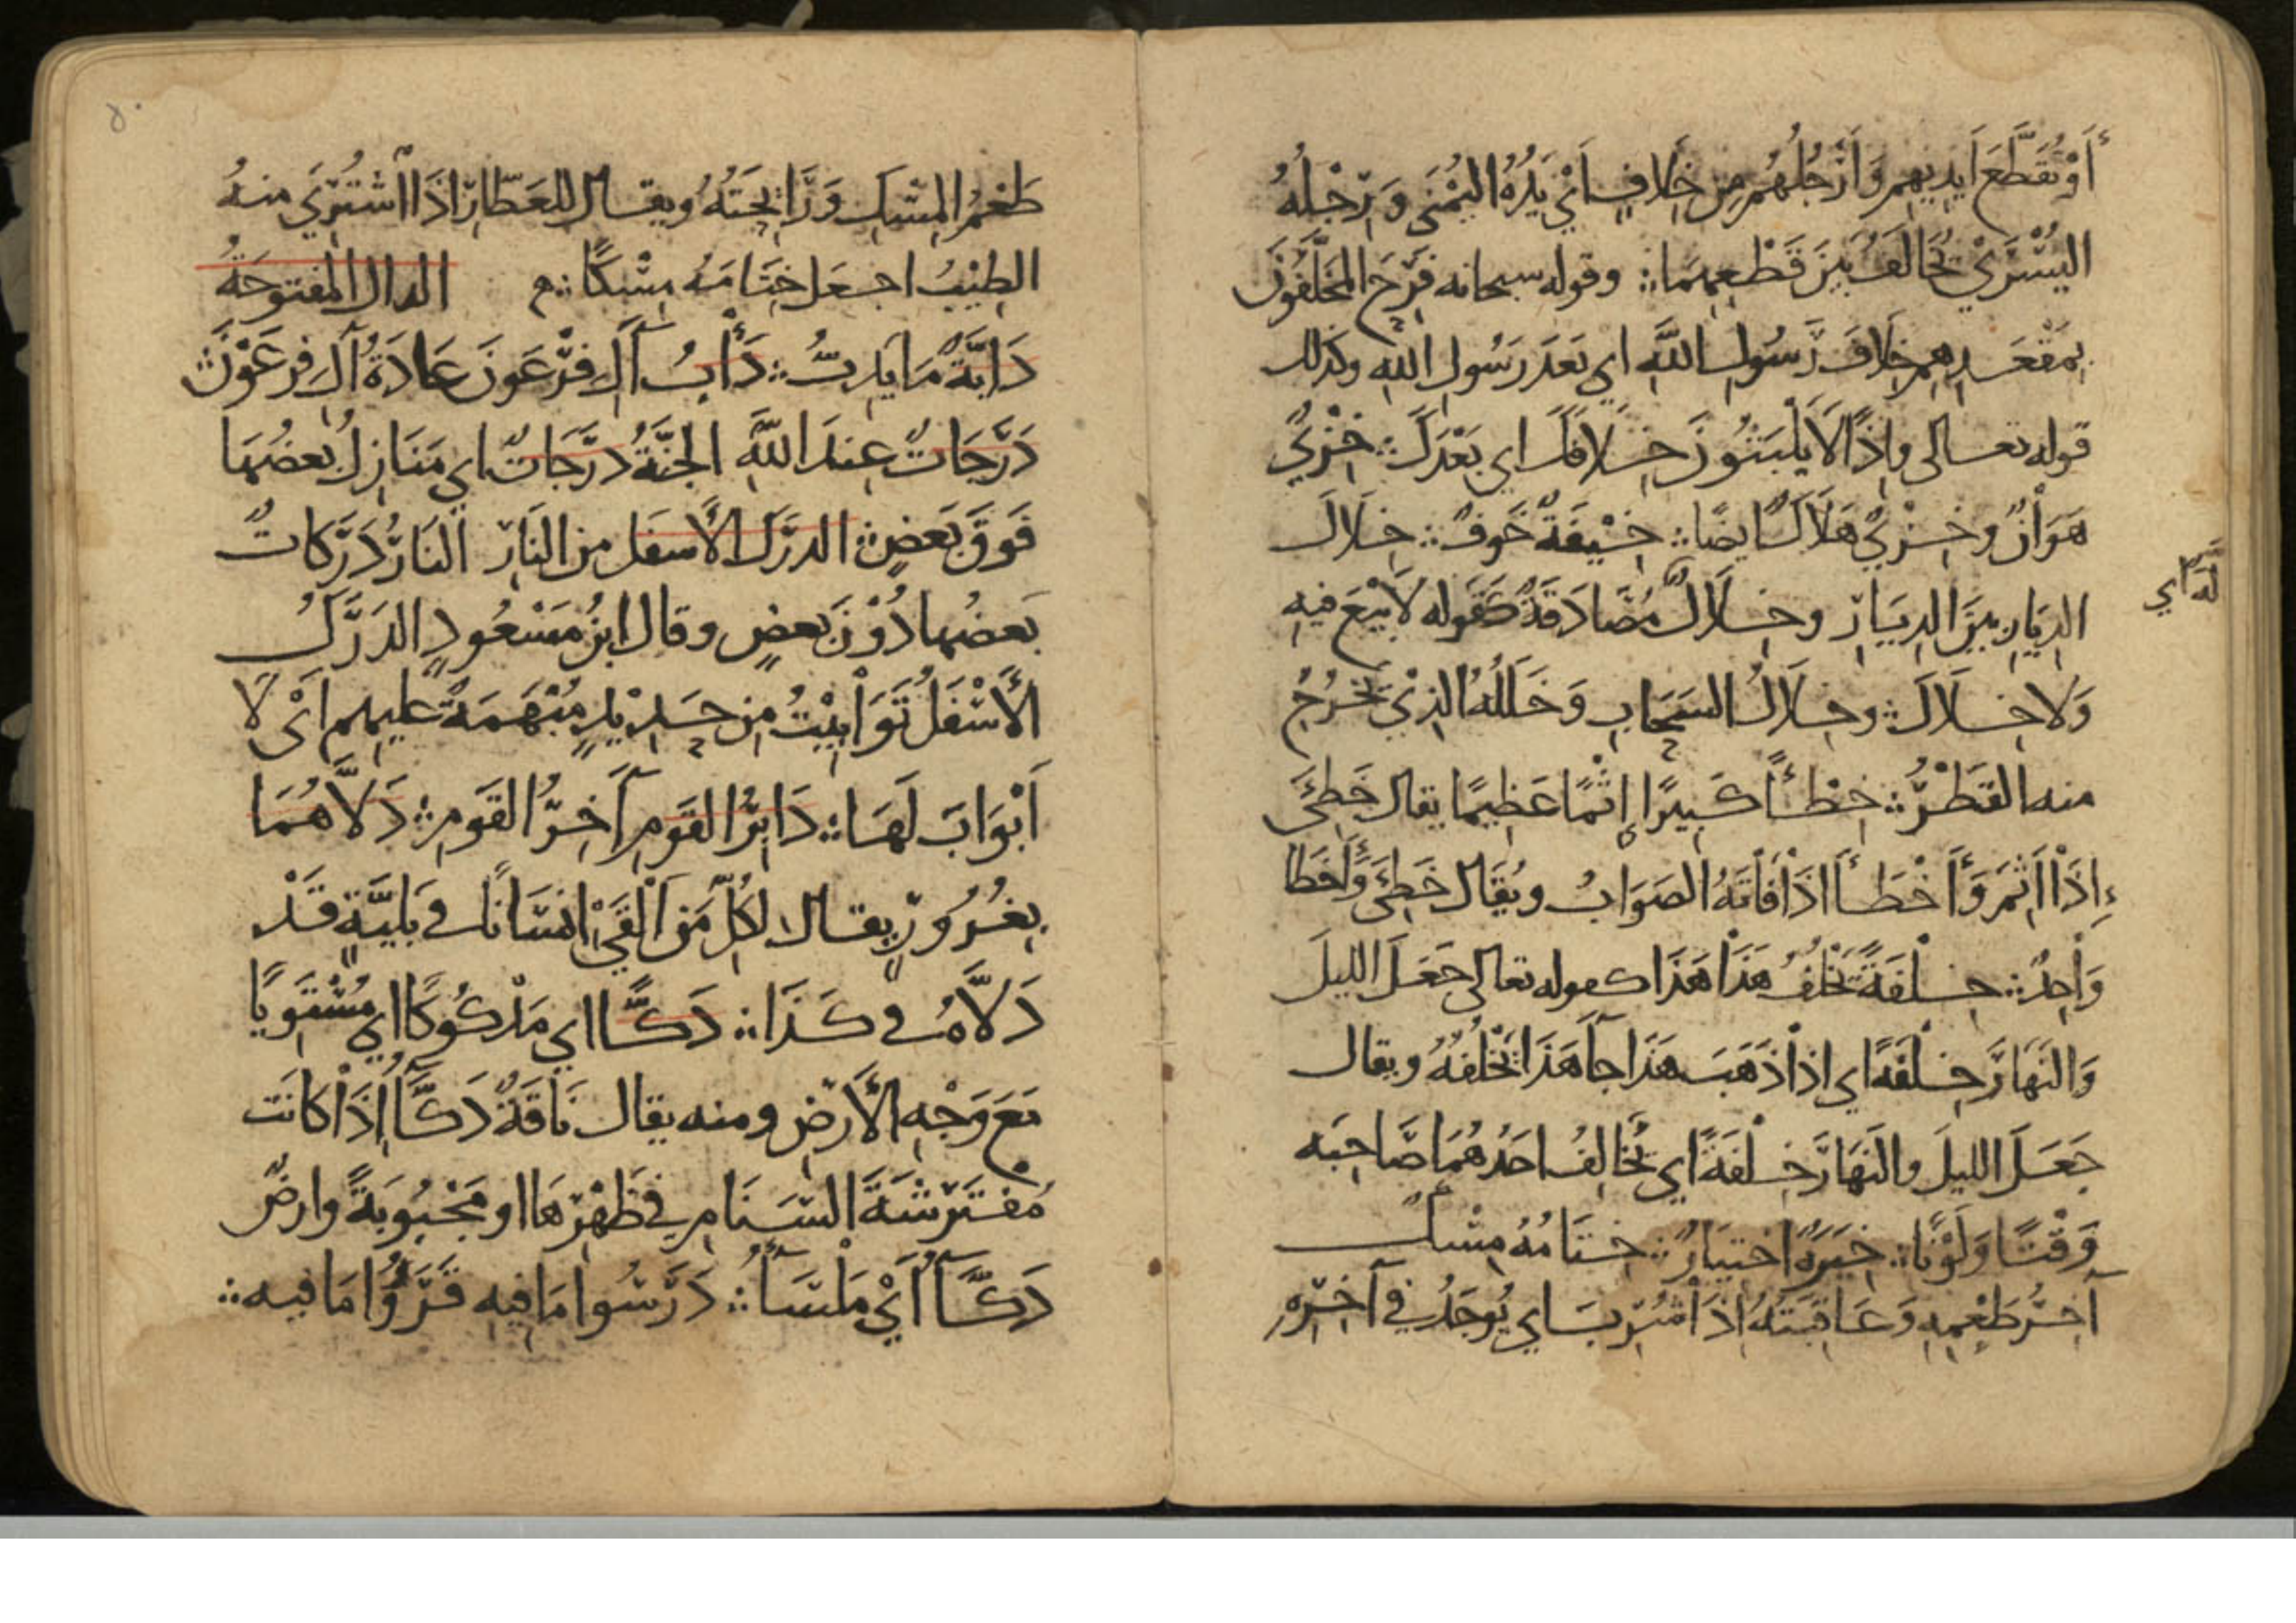 أَوْ تُقَطَّعَ أَيْدِيهِمْ وَأَرْجُلُهُمْ مِنْ خِلَافٍ أَيْ يَدُهُ اليُمْنَى وَرِجْلُهُ
اليُسْرَى تُخَالَفُ بَيْنَ قَطْعِهِمَا ∴ وقوله سبحانه فَرِحَ المُخَلَّفُونَ
بِمَقْعَدِهِمْ خِلَافَ رَسُولِ اللَّهِ اي بَعْدَ رَسُولِ اللهِ وكذلك
قوله تعالى وإِذًا لَا يَلْبَثُونَ خِلَافَكَ اي بَعْدَكَ ∴ خِزْيٌ
هَوَانٌ وخِزْيٌ هَلَاكٌ ايضًا ∴ خِيْفَةً خَوفٌ ∴ خِلَالَ
الدِيَارِ بَيْنَ الدِيَارِ وخِلَالٌ مُصَادَقَةٌ كَقَوله لَا بَيْعَ فيهِ
لَهُ اي
وَلَا خِلَالَ ∴ وخِلَالُ السَحَابِ وَخَلَلُهُ الذِيْ يَخْرُجُ
منه القَطْرُ ∴ خِطْأً كَبِيرًا إِثْمًا عَظِيمًا يقال خَطِئَ
إِذَا أَثِمَ وَأَخْطَأَ اذَا فَاتَهُ الصَوَابُ ويُقَال خَطِئَ وَأَخطَا
وَاحِدٌ ∴ خِلْفَةً تَخْلُفُ هَذَا هَذَا كقوله تعالى جَعَلَ الليلَ
وَالنَهَارَ خِلْفَةً اي اذا ذَهَبَ هَذَا جآ هَذَا يَخْلُفُهُ ويقال
جَعَلَ الليلَ والنَهَارَ خِلْفَةً اي يُخَالِفُ احَدُهُمَا صَاحِبَه
وَقْتًا وَلَوْنًا ∴ خِيَرَةٌ اختيَارٌ ∴ خِتَامُهُ مِسْكٌ
آخِرُ طَعْمِهِ وَعَاقِبَتُهُ اذَا شُرِبَ اي يُوجَدُ في آخِرِهِ
طَعْمُ المِسْكِ وَرَايِحَتُهُ ويقال للعَطَّارِ اذَا اشْتُرِيَ منهُ
الطِيْبُ اجعَل خِتَامَهُ مِسْكًا ∴ الدال المفتوحَةُ
دَابَّةٌ مَا يَدِبُّ ∴ دَأْبُ آلِ فِرْعَونَ عَادَةُ آلِ فِرعَوْنَ ∴
دَرَجَاتٌ عِندَ اللَّهِ الجنَّةُ دَرَجَاتٌ اي مَنَازِلُ بَعضُهَا
فَوقَ بَعضٍ ∴ الدرَكِ الأَسفَلِ من النَارِ النَارُ دَرَكَاتٌ
بَعضُها دُوْنَ بَعضٍ وقال ابنُ مَسْعُودٍ الدَرَكُ
الأَسْفَلُ تَوَابِيْتُ مِن حَدِيْدٍ مُبْهَمَةٌ عليهم أَيْ لَا
أَبْوَابَ لَهَا ∴ دَابِرُ القَومِ آخِرُ القَومِ ∴ دَلَّاهُمَا
بِغُرُورٍ يقال لِكُلِّ مَن أَلْقَى انسَانًا في بَلِيَّةٍ قَدْ
دَلَّاهُ في كَذَا ∴ دَكًّا اي مَدْكُوكًا اي مُسْتَوِيًا
مَعَ وَجْهِ الأَرْضِ ومنه يقال نَاقَةٌ دَكَّآءُ اذَا كَانَت
مُفْتَرِشَةَ السَنَامِ في ظَهْرِهَا او مَجْبُوبَةً وارضٌ
دَكَّآءُ أَيْ مَلْسَآءُ ∴ دَرَسُوا مَا فِيهِ قَرَؤُا مَا فيه ∴